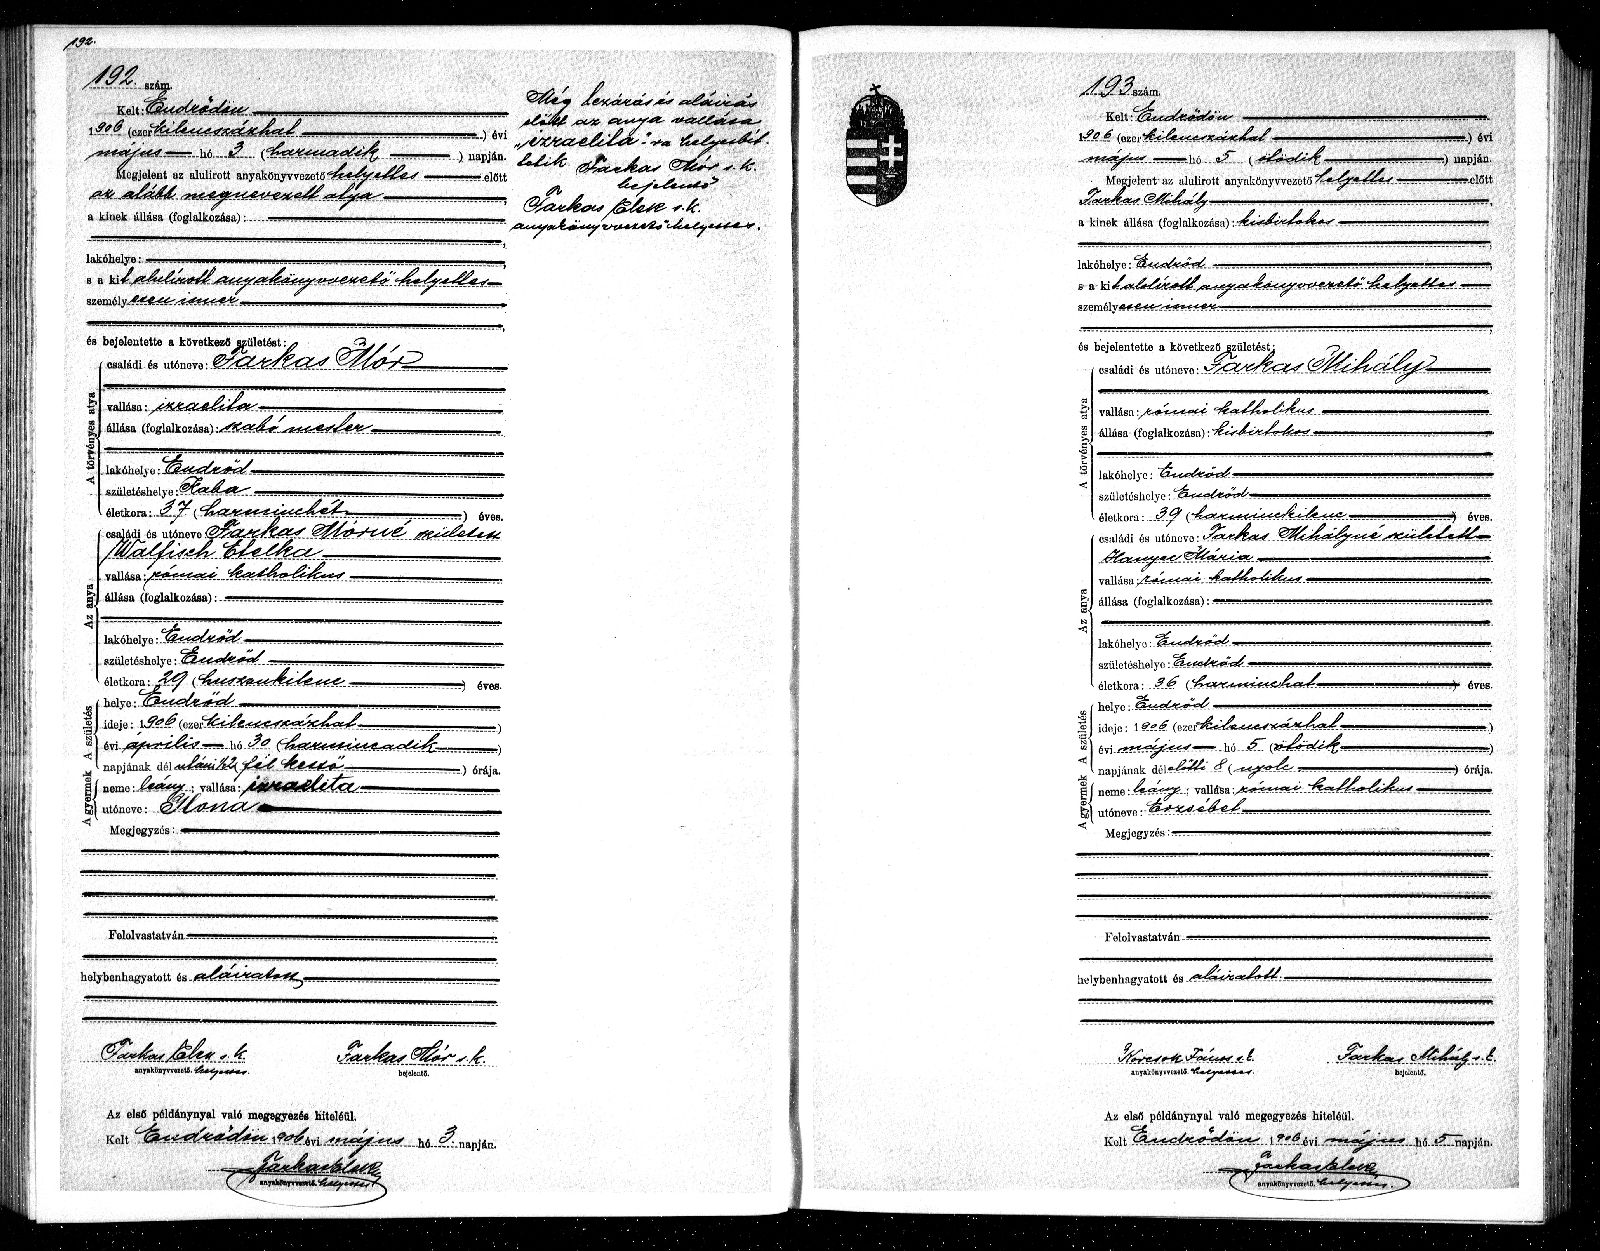 192.
192. szám.
Kelt: Endrődön
1906 (ezer kilencszázhat) évi
május hó 3 (harmadik) napján.
Megjelent az alulirott anyakönyvvezető helyettes előtt
az alább megnevezett atya
a kinek állása (foglalkozása):
lakóhelye:
s a kit alulírott anyakönyvvezető helyettes
személyesen ismer
és bejelentette a következő születést:
A törvényes atya
családi és utóneve: Farkas Mór
vallása: izraelita
állása (foglalkozása): szabó mester
lakóhelye: Endrőd
születéshelye: Kaba
életkora: 37 (harminchét) éves.
Az anya
családi és utóneve Farkas Mórné született
Walfisch Etelka
vallása: római katholikus
állása (foglalkozása):
lakóhelye: Endrőd
születéshelye: Endrőd
életkora: 29 (huszonkilenc) éves.
A születés
helye: Endrőd
ideje: 1906 (ezer kilencszázhat)
évi április hó 30 (harmincadik)
napjának dél utáni ½2 (fél kettő) órája.
A gyermek
neme: leány; vallása: izraelita
utóneve: Ilona
Megjegyzés:
Felolvastatván
helybenhagyatott és aláiratott
Farkas Elek s. k.
anyakönyvvezető helyettes.
Farkas Mór s. k.
bejelentő.
Az első példánynyal való megegyezés hiteléül.
Kelt Endrődön 1906 évi május hó 3. napján.
Farkas Elek
anyakönyvvezető. helyettes.
Még bezárás és aláirás
előtt az anya vallása
„izraelita"-ra helyesbit-
tetik Farkas Mór s. k.
bejelentő
Farkas Elek s. k.
anyakönyvvezető helyettes.
193 szám.
Kelt: Endrődön
1906 (ezer kilencszázhat) évi
május hó 5 (ötödik) napján.
Megjelent az alulirott anyakönyvvezető helyettes előtt
Farkas Mihály
a kinek állása (foglalkozása): kisbirtokos
lakóhelye: Endrőd
s a kit alólírott anyakönyvvezető helyettes
személyesen ismer
és bejelentette a következő születést:
A törvényes atya
családi és utóneve: Farkas Mihály
vallása: római katholikus
állása (foglalkozása): kisbirtokos
lakóhelye: Endrőd
születéshelye: Endrőd
életkora: 39 (harminckilenc) éves.
Az anya
családi és utóneve: Farkas Mihályné született
Hanyec Mária
vallása: római katholikus
állása (foglalkozása):
lakóhelye: Endrőd
születéshelye: Endrőd
életkora: 36 (harminchat) éves.
A születés
helye: Endrőd
ideje: 1906 (ezer kilencszázhat)
évi május hó 5 (ötödik)
napjának dél előtti 8 (nyolc) órája.
A gyermek
neme: leány; vallása: római katholikus
utóneve: Erzsébet
Megjegyzés:
Felolvastatván
helybenhagyatott és aláiratott.
Korcsok János s. k.
anyakönyvvezető. helyettes.
Farkas Mihály s. k.
bejelentő.
Az első példánynyal való megegyezés hiteléül.
Kelt Endrődön 1906 évi május hó 5 napján.
Farkas Elek
anyakönyvvezető. helyettes.